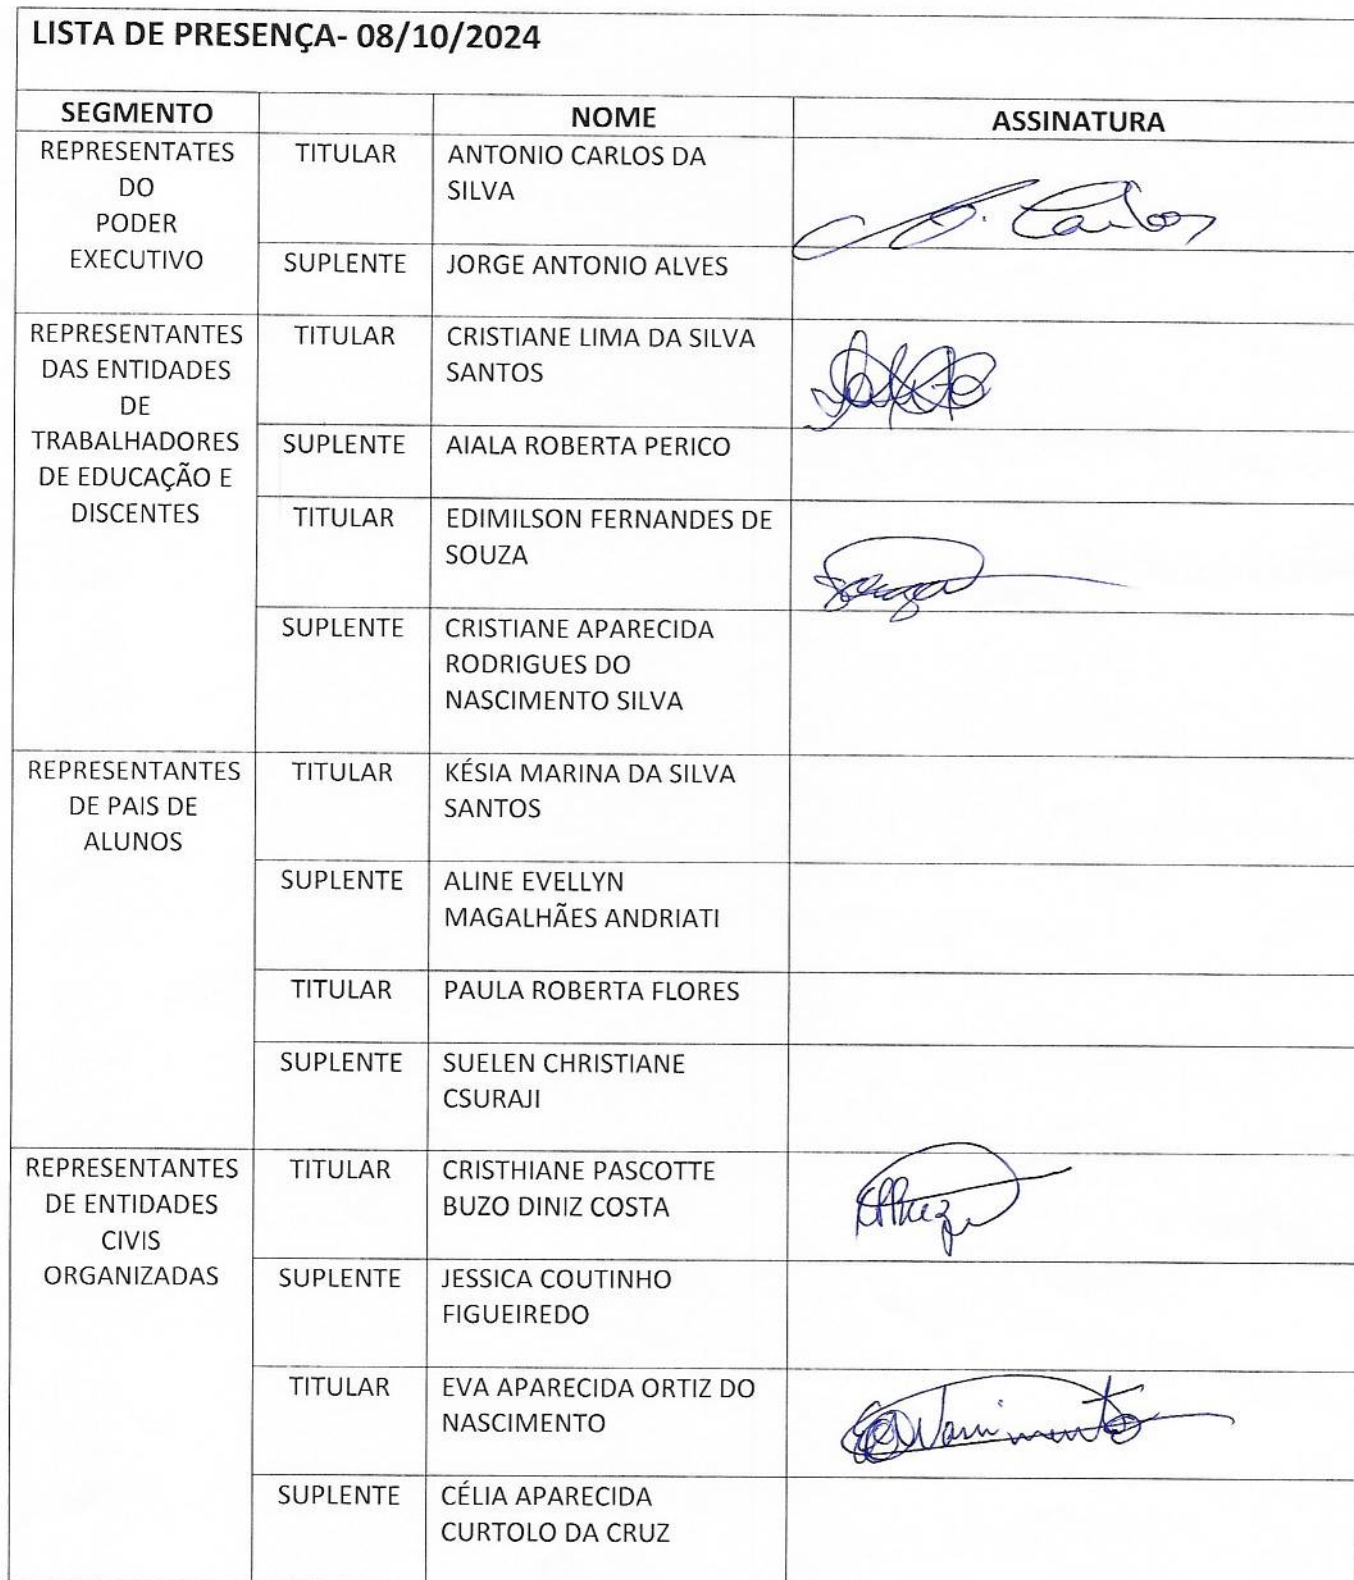 LISTA DE PRESENÇA- 08/10/2024
SEGMENTO NOME ASSINATURA
REPRESENTATES
DO
PODER
EXECUTIVO
TITULAR
ANTONIO CARLOS DA
SILVA
A. Carlos
SUPLENTE
JORGE ANTONIO ALVES
REPRESENTANTES
DAS ENTIDADES
DE
TRABALHADORES
DE EDUCAÇÃO E
DISCENTES
TITULAR
CRISTIANE LIMA DA SILVA
SANTOS
SUPLENTE
AIALA ROBERTA PERICO
TITULAR
EDIMILSON FERNANDES DE
SOUZA
Souza
SUPLENTE
CRISTIANE APARECIDA
RODRIGUES DO
NASCIMENTO SILVA
REPRESENTANTES
DE PAIS DE
ALUNOS
TITULAR
KÉSIA MARINA DA SILVA
SANTOS
SUPLENTE
ALINE EVELLYN
MAGALHÃES ANDRIATI
TITULAR
PAULA ROBERTA FLORES
SUPLENTE
SUELEN CHRISTIANE
CSURAJI
REPRESENTANTES
DE ENTIDADES
CIVIS
ORGANIZADAS
TITULAR
CRISTHIANE PASCOTTE
BUZO DINIZ COSTA
SUPLENTE
JESSICA COUTINHO
FIGUEIREDO
TITULAR
EVA APARECIDA ORTIZ DO
NASCIMENTO
Nascimento
SUPLENTE
CÉLIA APARECIDA
CURTOLO DA CRUZ